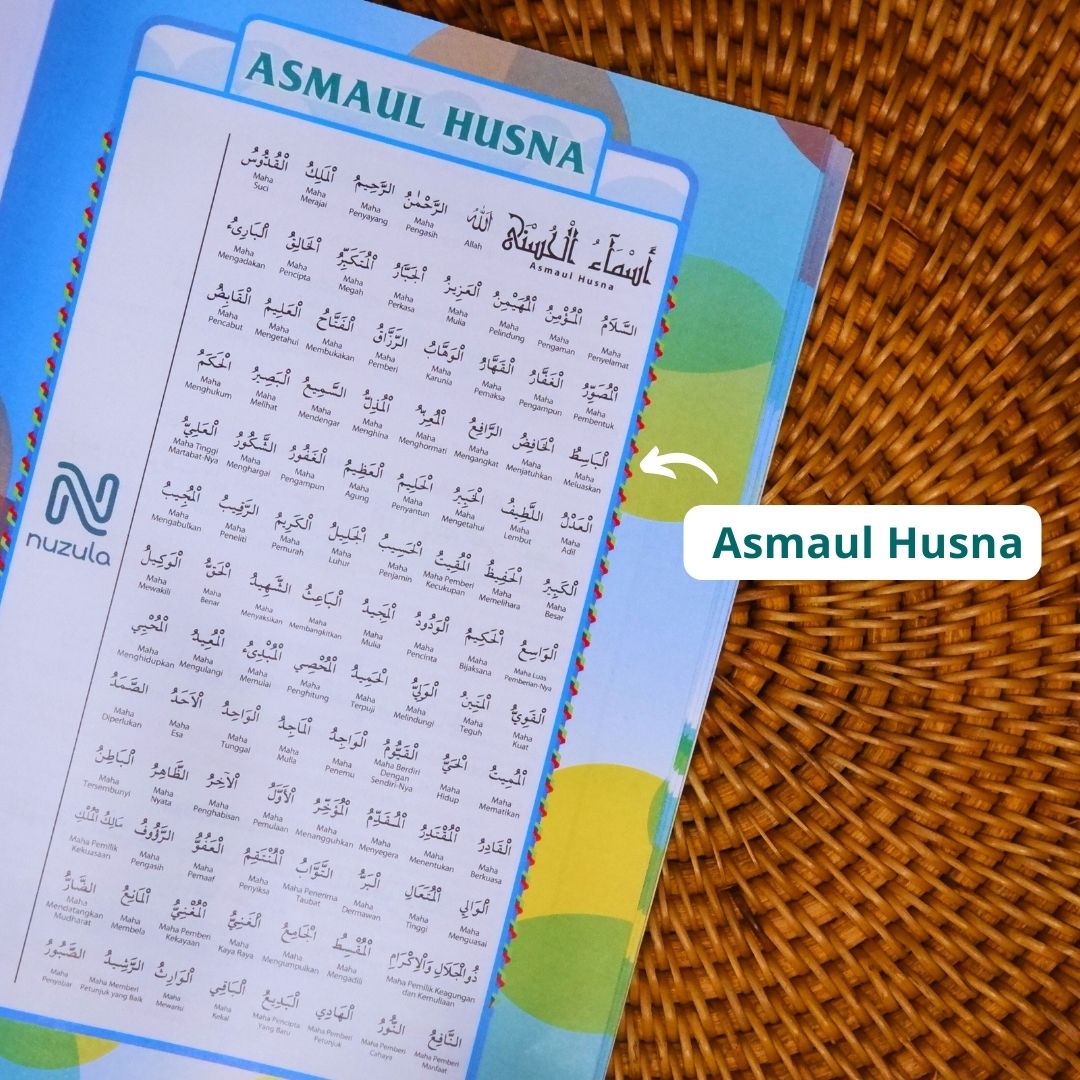 ASMAUL HUSNA
أَسْمَآءُ الْحُسْنَى اللهُ الرَّحْمٰنُ الرَّحِيمُ الْمَلِكُ الْقُدُّوسُ
Asmaul Husna Allah Maha Pengasih Maha Penyayang Maha Merajai Maha Suci
السَّلَامُ الْمُؤْمِنُ الْمُهَيْمِنُ الْعَزِيزُ الْجَبَّارُ الْمُتَكَبِّرُ الْخَالِقُ الْبَارِىءُ
Maha Penyelamat Maha Pengaman Maha Pelindung Maha Mulia Maha Perkasa Maha Megah Maha Pencipta Maha Mengadakan
الْمُصَوِّرُ الْغَفَّارُ الْقَهَّارُ الْوَهَّابُ الرَّزَّاقُ الْفَتَّاحُ الْعَلِيمُ الْقَابِضُ
Maha Pembentuk Maha Pengampun Maha Pemaksa Maha Karunia Maha Pemberi Maha Membukakan Maha Mengetahui Maha Pencabut
الْبَاسِطُ الْخَافِضُ الرَّافِعُ الْمُعِزُّ الْمُذِلُّ السَّمِيعُ الْبَصِيرُ الْحَكَمُ
Maha Meluaskan Maha Menjatuhkan Maha Mengangkat Maha Menghormati Maha Menghina Maha Mendengar Maha Melihat Maha Menghukum
الْعَدْلُ اللَّطِيفُ الْخَبِيرُ الْحَلِيمُ الْعَظِيمُ الْغَفُورُ الشَّكُورُ الْعَلِيُّ
Maha Adil Maha Lembut Maha Mengetahui Maha Penyantun Maha Agung Maha Pengampun Maha Menghargai Maha Tinggi Martabat-Nya
الْكَبِيرُ الْحَفِيظُ الْمُقِيتُ الْحَسِيبُ الْجَلِيلُ الْكَرِيمُ الرَّقِيبُ الْمُجِيبُ
Maha Besar Maha Memelihara Maha Pemberi Kecukupan Maha Penjamin Maha Luhur Maha Pemurah Maha Peneliti Maha Mengabulkan
الْوَاسِعُ الْحَكِيمُ الْوَدُودُ الْمَجِيدُ الْبَاعِثُ الشَّهِيدُ الْحَقُّ الْوَكِيلُ
Maha Luas Pemberian-Nya Maha Bijaksana Maha Pencinta Maha Mulia Maha Membangkitkan Maha Menyaksikan Maha Benar Maha Mewakili
الْقَوِيُّ الْمَتِينُ الْوَلِيُّ الْحَمِيدُ الْمُحْصِي الْمُبْدِىءُ الْمُعِيدُ الْمُحْيِي
Maha Kuat Maha Teguh Maha Melindungi Maha Terpuji Maha Penghitung Maha Memulai Maha Mengulangi Maha Menghidupkan
الْمُمِيتُ الْحَيُّ الْقَيُّومُ الْوَاجِدُ الْمَاجِدُ الْوَاحِدُ الْاَحَدُ الصَّمَدُ
Maha Mematikan Maha Hidup Maha Berdiri Dengan Sendiri-Nya Maha Penemu Maha Mulia Maha Tunggal Maha Esa Maha Diperlukan
الْقَادِرُ الْمُقْتَدِرُ الْمُقَدِّمُ الْمُؤَخِّرُ الْأَوَّلُ الْآخِرُ الظَّاهِرُ الْبَاطِنُ
Maha Berkuasa Maha Menentukan Maha Menyegera Maha Menangguhkan Maha Pemulaan Maha Penghabisan Maha Nyata Maha Tersembunyi
الْوَالِي الْمُتَعَالِ الْبَرُّ التَّوَّابُ الْمُنْتَقِمُ الْعَفُوُّ الرَّؤُوفُ مَالِكُ الْمُلْكِ
Maha Menguasai Maha Tinggi Maha Dermawan Maha Penerima Taubat Maha Penyiksa Maha Pemaaf Maha Pengasih Maha Pemilik Kekuasaan
ذُوالْجَلَالِ وَالْاِكْرَامِ الْمُقْسِطُ الْجَامِعُ الْغَنِيُّ الْمُغْنِيُّ الْمَانِعُ الضَّارُّ
Maha Pemilik Keagungan dan Kemuliaan Maha Mengadili Maha Mengumpulkan Maha Kaya Raya Maha Pemberi Kekayaan Maha Membela Maha Mendatangkan Mudharat
النَّافِعُ النُّورُ الْهَادِي الْبَدِيعُ الْبَاقِي الْوَارِثُ الرَّشِيدُ الصَّبُورُ
Maha Pemberi Manfaat Maha Pemberi Cahaya Maha Pemberi Petunjuk Maha Pencipta Yang Baru Maha Kekal Maha Mewarisi Maha Memberi Petunjuk yang Baik Maha Penyabar
nuzula
Asmaul Husna